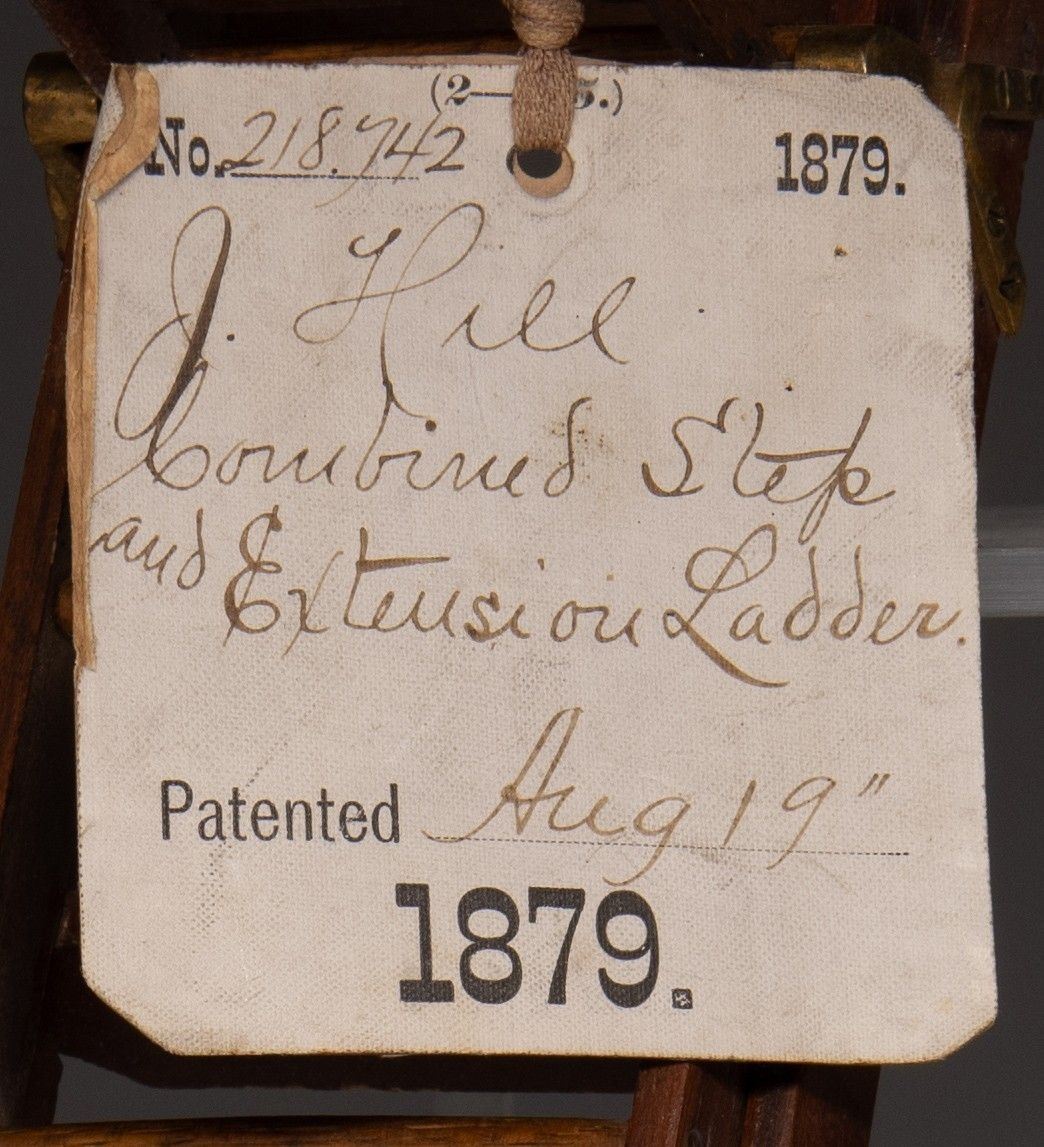 (2— 5.)
No. 218.742 1879.
J. Hill
Combined Step
and Extension Ladder.
Patented Aug 19"
1879.